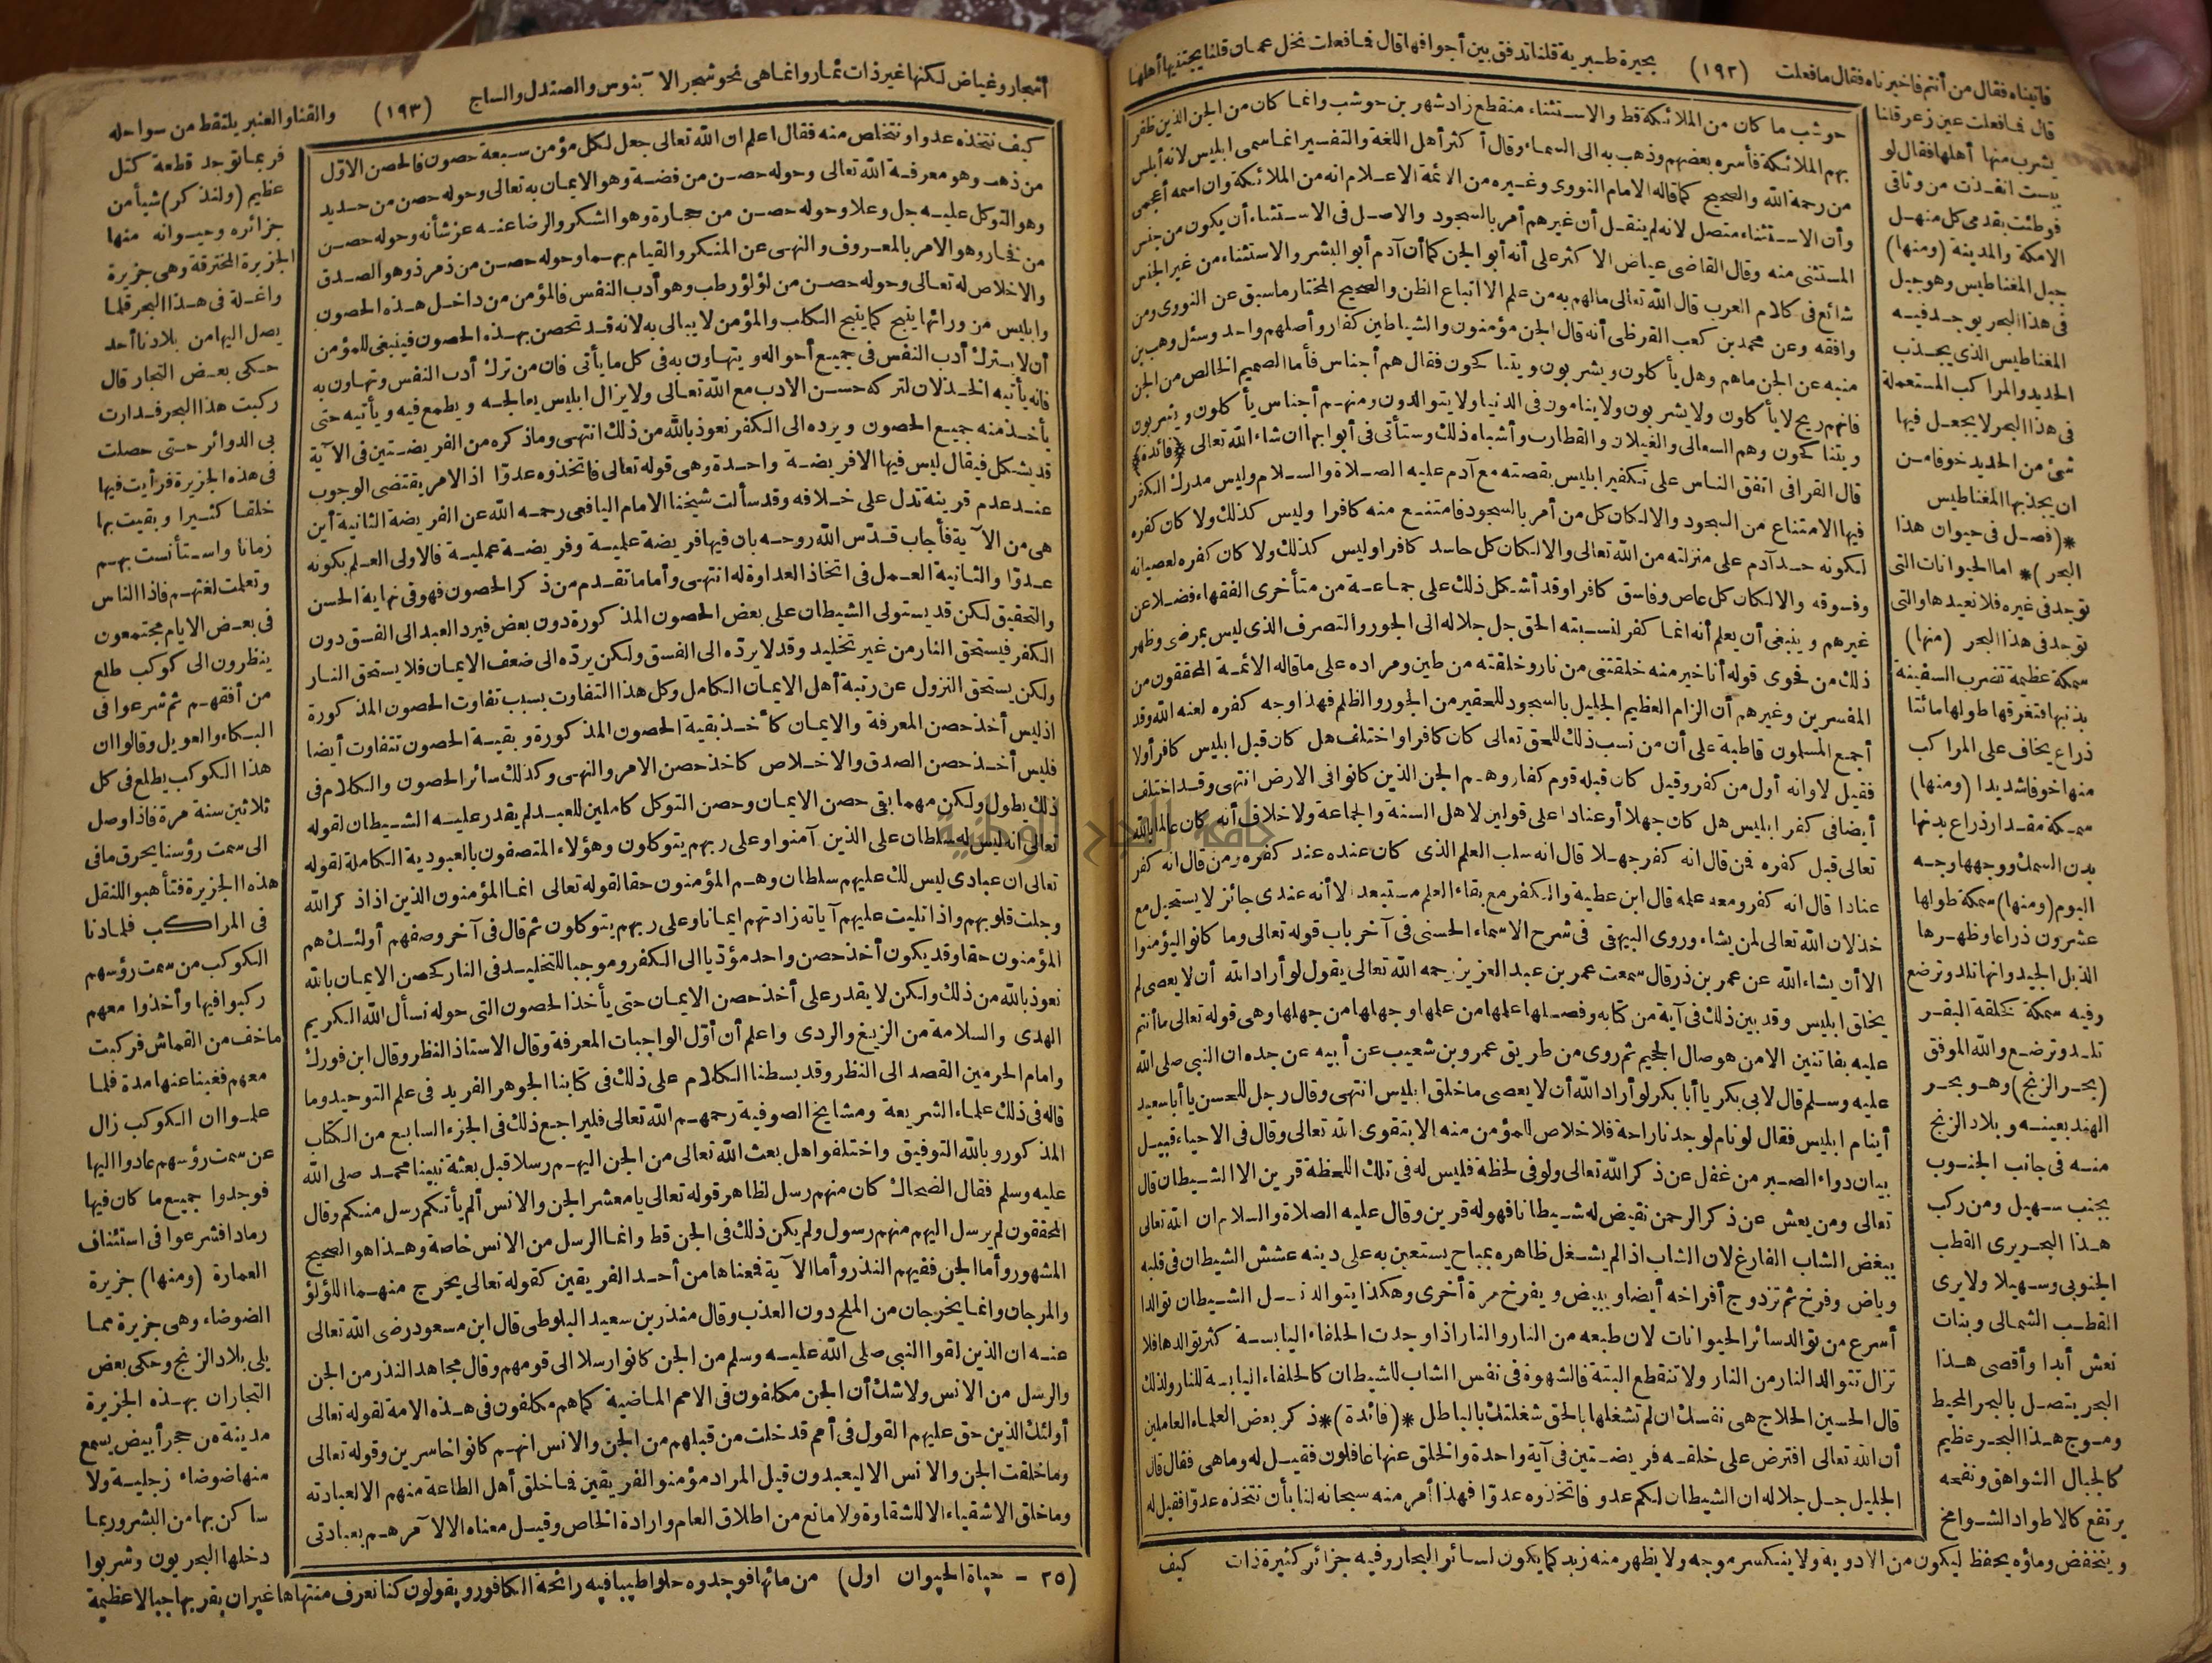 فأتيناه فقال من أنتم فاخبرناه فقال ما فعلت (١٩٢) بحيرة طبرية قلنا تدفق بين أجوافها قال فما فعلت نخل عمان قلنا يجتنيها أهلها
قال فما فعلت عين زعر قلنا
يشرب منها أهلها فقال لو
يبست انفذت من وثاقى
فوطئت بقدمى كل منهل
الا مكة والمدينة (ومنها)
جبل المغناطيس وهو جبل
فى هذا البحر يوجد فيه
المغناطيس الذى يجذب
الحديد والمراكب المستعملة
فى هذا البحر لا يجعل فيها
شئ من الحديد خوفا من
ان يجذبها المغناطيس
*(فصل فى حيوان هذا
البحر)* اما الحيوانات التى
توجد فى غيره فلا نعيدها والتى
توجد فى هذا البحر (منها)
سمكة عظيمة تضرب السفينة
بذنبها فتغرقها طولها مائتا
ذراع يخاف على المراكب
منها خوفا شديدا (ومنها)
سمكة مقدار ذراع بدنها
بدن السمك ووجهها وجه
البوم (ومنها) سمكة طولها
عشرون ذراعا وظهرها
الذبل الجيد وانها تلد وترضع
وفيه سمكة كخلقة البقر
تلد وترضع والله الموفق
(بحر الزنج) وهو بحر
الهند بعينه وبلاد الزنج
منه فى جانب الجنوب
بجنب سهيل ومن ركب
هذا البحر يرى القطب
الجنوبى وسهيلا ولا يرى
القطب الشمالى وبنات
نعش أبدا وأقصى هذا
البحر يتصل بالبحر المحيط
وموج هذا البحر عظيم
كالجبال الشواهق ونفحه
يرتفع كالاطواد الشوامخ
وينخفض وماؤه يحفظ ليكون من الادوية ولا ينكسر موجه ولا يظهر منه زبد كما يكون لسائر البحار وفيه جزائر كثيرة ذات
حوشب ما كان من الملائكة قط والاستثناء منقطع زاد شهر بن حوشب وانما كان من الجن الذين ظفر
بهم الملائكة فأسره بعضهم وذهب به الى السماء وقال أكثر أهل اللغة والتفسير انما سمى ابليس لانه أبلس
من رحمة الله والصحيح كما قاله الامام النووى وغيره من الائمة الاعلام انه من الملائكة وان اسمه أعجمى
وأن الاستثناء متصل لانه لم ينقل أن غيرهم أمر بالسجود والاصل فى الاستثناء أن يكون من جنس
المستثنى منه وقال القاضى عياض الاكثر على أنه أبو الجن كما أن آدم أبو البشر والاستثناء من غير الجنس
شائع فى كلام العرب قال الله تعالى مالهم به من علم الا اتباع الظن والصحيح المختار ما سبق عن النووى ومن
وافقه وعن محمد بن كعب القرظى أنه قال الجن مؤمنون والشياطين كفار وأصلهم واحد وسئل وهب بن
منبه عن الجن ماهم وهل يأكلون ويشربون ويتناكحون فقال هم أجناس فأما الصميم الخالص من الجن
فانهم ريح لا يأكلون ولا يشربون ولا ينامون فى الدنيا ولا يتوالدون ومنهم أجناس يأكلون ويشربون
ويتناكحون وهم السعالى والغيلان والقطارب وأشباه ذلك وستأتى فى أبوابها ان شاء الله تعالى ﴿فائدة﴾
قال القرافى اتفق الناس على تكفير ابليس بقصته مع آدم عليه الصلاة والسلام وليس مدرك الكفر
فيها الامتناع من السجود والا لكان كل من أمر بالسجود فامتنع منه كافرا وليس كذلك ولا كان كفره
لكونه حسد آدم على منزلته من الله تعالى والا لكان كل حاسد كافرا وليس كذلك ولا كان كفره لعصيانه
وفسوقه والا لكان كل عاص وفاسق كافرا وقد أشكل ذلك على جماعة من متأخرى الفقهاء فضلا عن
غيرهم وينبغى أن يعلم أنه انما كفر لنسبته الحق جل جلاله الى الجور والتصرف الذى ليس بمرضى وظهر
ذلك من فحوى قوله أنا خير منه خلقتنى من نار وخلقته من طين ومراده على ما قاله الائمة المحققون من
المفسرين وغيرهم أن الزام العظيم الجليل بالسجود للحقير من الجور والظلم فهذا وجه كفره لعنه الله وقد
أجمع المسلمون قاطبة على أن من نسب ذلك للحق تعالى كان كافرا واختلف هل كان قبل ابليس كافر أولا
فقيل لا وانه أول من كفر وقيل كان قبله قوم كفار وهم الجن الذين كانوا فى الارض انتهى وقد اختلف
أيضا فى كفر ابليس هل كان جهلا أو عنادا على قولين لاهل السنة والجماعة ولا خلاف أنه كان عالما بالله
تعالى قبل كفره فمن قال انه كفر جهلا قال انه سلب العلم الذى كان عنده عند كفره ومن قال انه كفر
عنادا قال انه كفر ومعه علمه قال ابن عطية والكفر مع بقاء العلم مستبعد الا أنه عندى جائز لا يستحيل مع
خذلان الله تعالى لمن يشاء وروى البيهقى فى شرح الاسماء الحسنى فى آخر باب قوله تعالى وما كانوا ليؤمنوا
الا أن يشاء الله عن عمر بن ذر قال سمعت عمر بن عبد العزيز رحمه الله تعالى يقول لو أراد الله أن لا يعصى لم
يخلق ابليس وقد بين ذلك فى آية من كتابه وفصلها علمها من علمها وجهلها من جهلها وهى قوله تعالى ما أنتم
عليه بفاتنين الا من هو صال الجحيم ثم روى من طريق عمرو بن شعيب عن أبيه عن جده ان النبى صلى الله
عليه وسلم قال لابى بكر يا أبا بكر لو أراد الله أن لا يعصى ما خلق ابليس انتهى وقال رجل للحسن يا أبا سعيد
أينام ابليس فقال لو نام لوجدنا راحة فلا خلاص للمؤمن منه الا بتقوى الله تعالى وقال فى الاحياء قبيل
بيان دواء الصبر من غفل عن ذكر الله تعالى ولو فى لحظة فليس له فى تلك اللحظة قرين الا الشيطان قال
تعالى ومن يعش عن ذكر الرحمن نقيض له شيطانا فهو له قرين وقال عليه الصلاة والسلام ان الله تعالى
يبغض الشاب الفارغ لان الشاب اذا لم يشغل ظاهره بمباح يستعين به على دينه عشش الشيطان فى قلبه
وباض وفرخ ثم تزدوج أفراخه أيضا ويبيض ويفرخ مرة أخرى وهكذا يتوالد نسل الشيطان توالدا
أسرع من توالد سائر الحيوانات لان طبعه من النار والنار اذا وجدت الحلفاء اليابسة كثر توالدها فلا
تزال تتوالد النار من النار ولا تنقطع البتة فالشهوة فى نفس الشاب للشيطان كالحلفاء اليابسة للنار ولذلك
قال الحسين الحلاج هى نفسك ان لم تشغلها بالحق شغلتك بالباطل *(فائدة)* ذكر بعض العلماء العاملين
أن الله تعالى افترض على خلقه فريضتين فى آية واحدة والخلق عنها غافلون فقيل له وما هى فقال قال
الجليل جل جلاله ان الشيطان لكم عدو فاتخذوه عدوا فهذا أمر منه سبحانه لنا بأن نتخذه عدوا فقيل له
كيف
أشجار وغياض لكنها غير ذات ثمار وانما هى نحو شجر الآبنوس والصندل والساج (١٩٣) والقنا والعنبر يلتقط من سواحله
كيف نتخذه عدوا ونتخلص منه فقال اعلم ان الله تعالى جعل لكل مؤمن سبعة حصون فالحصن الاول
من ذهب وهو معرفة الله تعالى وحوله حصن من فضة وهو الايمان به تعالى وحوله حصن من حديد
وهو التوكل عليه جل وعلا وحوله حصن من حجارة وهو الشكر والرضا عنه عز شأنه وحوله حصن
من فخار وهو الامر بالمعروف والنهى عن المنكر والقيام بهما وحوله حصن من زمرذ وهو الصدق
والاخلاص له تعالى وحوله حصن من لؤلؤ رطب وهو أدب النفس فالمؤمن من داخل هذه الحصون
وابليس من ورائها ينبح كما ينبح الكلب والمؤمن لا يبالى به لانه قد تحصن بهذه الحصون فينبغى للمؤمن
أن لا يترك أدب النفس فى جميع أحواله ويتهاون به فى كل ما يأتى فان من ترك أدب النفس وتهاون به
فانه يأتيه الخذلان لتركه حسن الادب مع الله تعالى ولا يزال ابليس يعالجه ويطمع فيه ويأتيه حتى
يأخذ منه جميع الحصون ويرده الى الكفر نعوذ بالله من ذلك انتهى وما ذكره من الفريضتين فى الآية
قد يشكل فيقال ليس فيها الا فريضة واحدة وهى قوله تعالى فاتخذوه عدوا اذ الامر يقتضى الوجوب
عند عدم قرينة تدل على خلافه وقد سألت شيخنا الامام اليافعى رحمه الله عن الفريضة الثانية أين
هى من الآية فأجاب قدس الله روحه بان فيها فريضة علمية وفريضة عملية فالاولى العلم بكونه
عدوا والثانية العمل فى اتخاذ العداوة له انتهى وأما ما تقدم من ذكر الحصون فهو فى نهاية الحسن
والتحقيق لكن قد يستولى الشيطان على بعض الحصون المذكورة دون بعض فيرد العبد الى الفسق دون
الكفر فيستحق النار من غير تخليد وقد لا يرده الى الفسق ولكن يرده الى ضعف الايمان فلا يستحق النار
ولكن يستحق النزول عن رتبة أهل الايمان الكامل وكل هذا التفاوت بسبب تفاوت الحصون المذكورة
اذ ليس أخذ حصن المعرفة والايمان كأخذ بقية الحصون المذكورة وبقية الحصون تتفاوت أيضا
فليس أخذ حصن الصدق والاخلاص كاخذ حصن الامر والنهى وكذلك سائر الحصون والكلام فى
ذلك يطول ولكن مهما بقى حصن الايمان وحصن التوكل كاملين للعبد لم يقدر عليه الشيطان لقوله
تعالى انه ليس له سلطان على الذين آمنوا وعلى ربهم يتوكلون وهؤلاء المتصفون بالعبودية الكاملة لقوله
تعالى ان عبادى ليس لك عليهم سلطان وهم المؤمنون حقا لقوله تعالى انما المؤمنون الذين اذا ذكر الله
وجلت قلوبهم واذا تليت عليهم آياته زادتهم ايمانا وعلى ربهم يتوكلون ثم قال فى آخر وصفهم أولئك هم
المؤمنون حقا وقد يكون أخذ حصن واحد مؤذيا الى الكفر وموجبا للتخليد فى النار كحصن الايمان بالله
نعوذ بالله من ذلك ولكن لا يقدر على أخذ حصن الايمان حتى يأخذ الحصون التى حوله نسأل الله الكريم
الهدى والسلامة من الزيغ والردى واعلم أن أول الواجبات المعرفة وقال الاستاذ النظر وقال ابن فورك
وامام الحرمين القصد الى النظر وقد بسطنا الكلام على ذلك فى كتابنا الجوهر الفريد فى علم التوحيد وما
قاله فى ذلك علماء الشريعة ومشايخ الصوفية رحمهم الله تعالى فليراجع ذلك فى الجزء السابع من الكتاب
المذكور وبالله التوفيق واختلفوا هل بعث الله تعالى من الجن اليهم رسلا قبل بعثة نبينا محمد صلى الله
عليه وسلم فقال الضحاك كان منهم رسل لظاهر قوله تعالى يا معشر الجن والانس ألم يأتكم رسل منكم وقال
المحققون لم يرسل اليهم منهم رسول ولم يكن ذلك فى الجن قط وانما الرسل من الانس خاصة وهذا هو الصحيح
المشهور وأما الجن ففيهم النذر وأما الآية فمعناها من أحد الفريقين كقوله تعالى يخرج منهما اللؤلؤ
والمرجان وانما يخرجان من الملح دون العذب وقال منذر بن سعيد البلوطى قال ابن مسعود رضى الله تعالى
عنه ان الذين لقوا النبى صلى الله عليه وسلم من الجن كانوا رسلا الى قومهم وقال مجاهد النذر من الجن
والرسل من الانس ولا شك أن الجن مكلفون فى الامم الماضية كما هم مكلفون فى هذه الامة لقوله تعالى
أولئك الذين حق عليهم القول فى أمم قد خلت من قبلهم من الجن والانس انهم كانوا خاسرين وقوله تعالى
وما خلقت الجن والانس الا ليعبدون قيل المراد مؤمنو الفريقين فما خلق أهل الطاعة منهم الا لعبادته
وما خلق الاشقياء الا للشقاوة ولا مانع من اطلاق العام وارادة الخاص وقيل معناه الا لآمرهم بعبادتى
فربما توجد قطعة كتل
عظيم (ولنذكر) شيأ من
جزائره وحيوانه منها
الجزيرة المحترقة وهى جزيرة
واغلة فى هذا البحر قلما
يصل اليها من بلادنا أحد
حكى بعض التجار قال
ركبت هذا البحر فدارت
بى الدوائر حتى حصلت
فى هذه الجزيرة فرأيت فيها
خلقا كثيرا وبقيت بها
زمانا واستأنست بهم
وتعلمت لغتهم فاذا الناس
فى بعض الايام مجتمعون
ينظرون الى كوكب طلع
من أفقهم ثم شرعوا فى
البكاء والعويل وقالوا ان
هذا الكوكب يطلع فى كل
ثلاثين سنة مرة فاذا وصل
الى سمت رؤسنا يحرق ما فى
هذه الجزيرة فتأهبوا للنقل
فى المراكب فلما دنا
الكوكب من سمت رؤسهم
ركبوا فيها وأخذوا معهم
ما خف من القماش فركبت
معهم فغبنا عنها مدة فلما
علموا ان الكوكب زال
عن سمت رؤسهم عادوا اليها
فوجدوا جميع ما كان فيها
رمادا فشرعوا فى استئناف
العمارة (ومنها) جزيرة
الضوضاء وهى جزيرة مما
يلى بلاد الزنج وحكى بعض
التجار ان بهذه الجزيرة
مدينة من حجر أبيض يسمع
منها ضوضاء زجلية ولا
ساكن بها من البشر وربما
دخلها البحريون وشربوا
من مائها فوجدوه حلوا طيبا فيه رائحة الكافور ويقولون كنا نعرف منتهاها غير ان بقربها جبالا عظيمة
(٢٥ - حياة الحيوان اول)
جامعة النجاح الوطنية